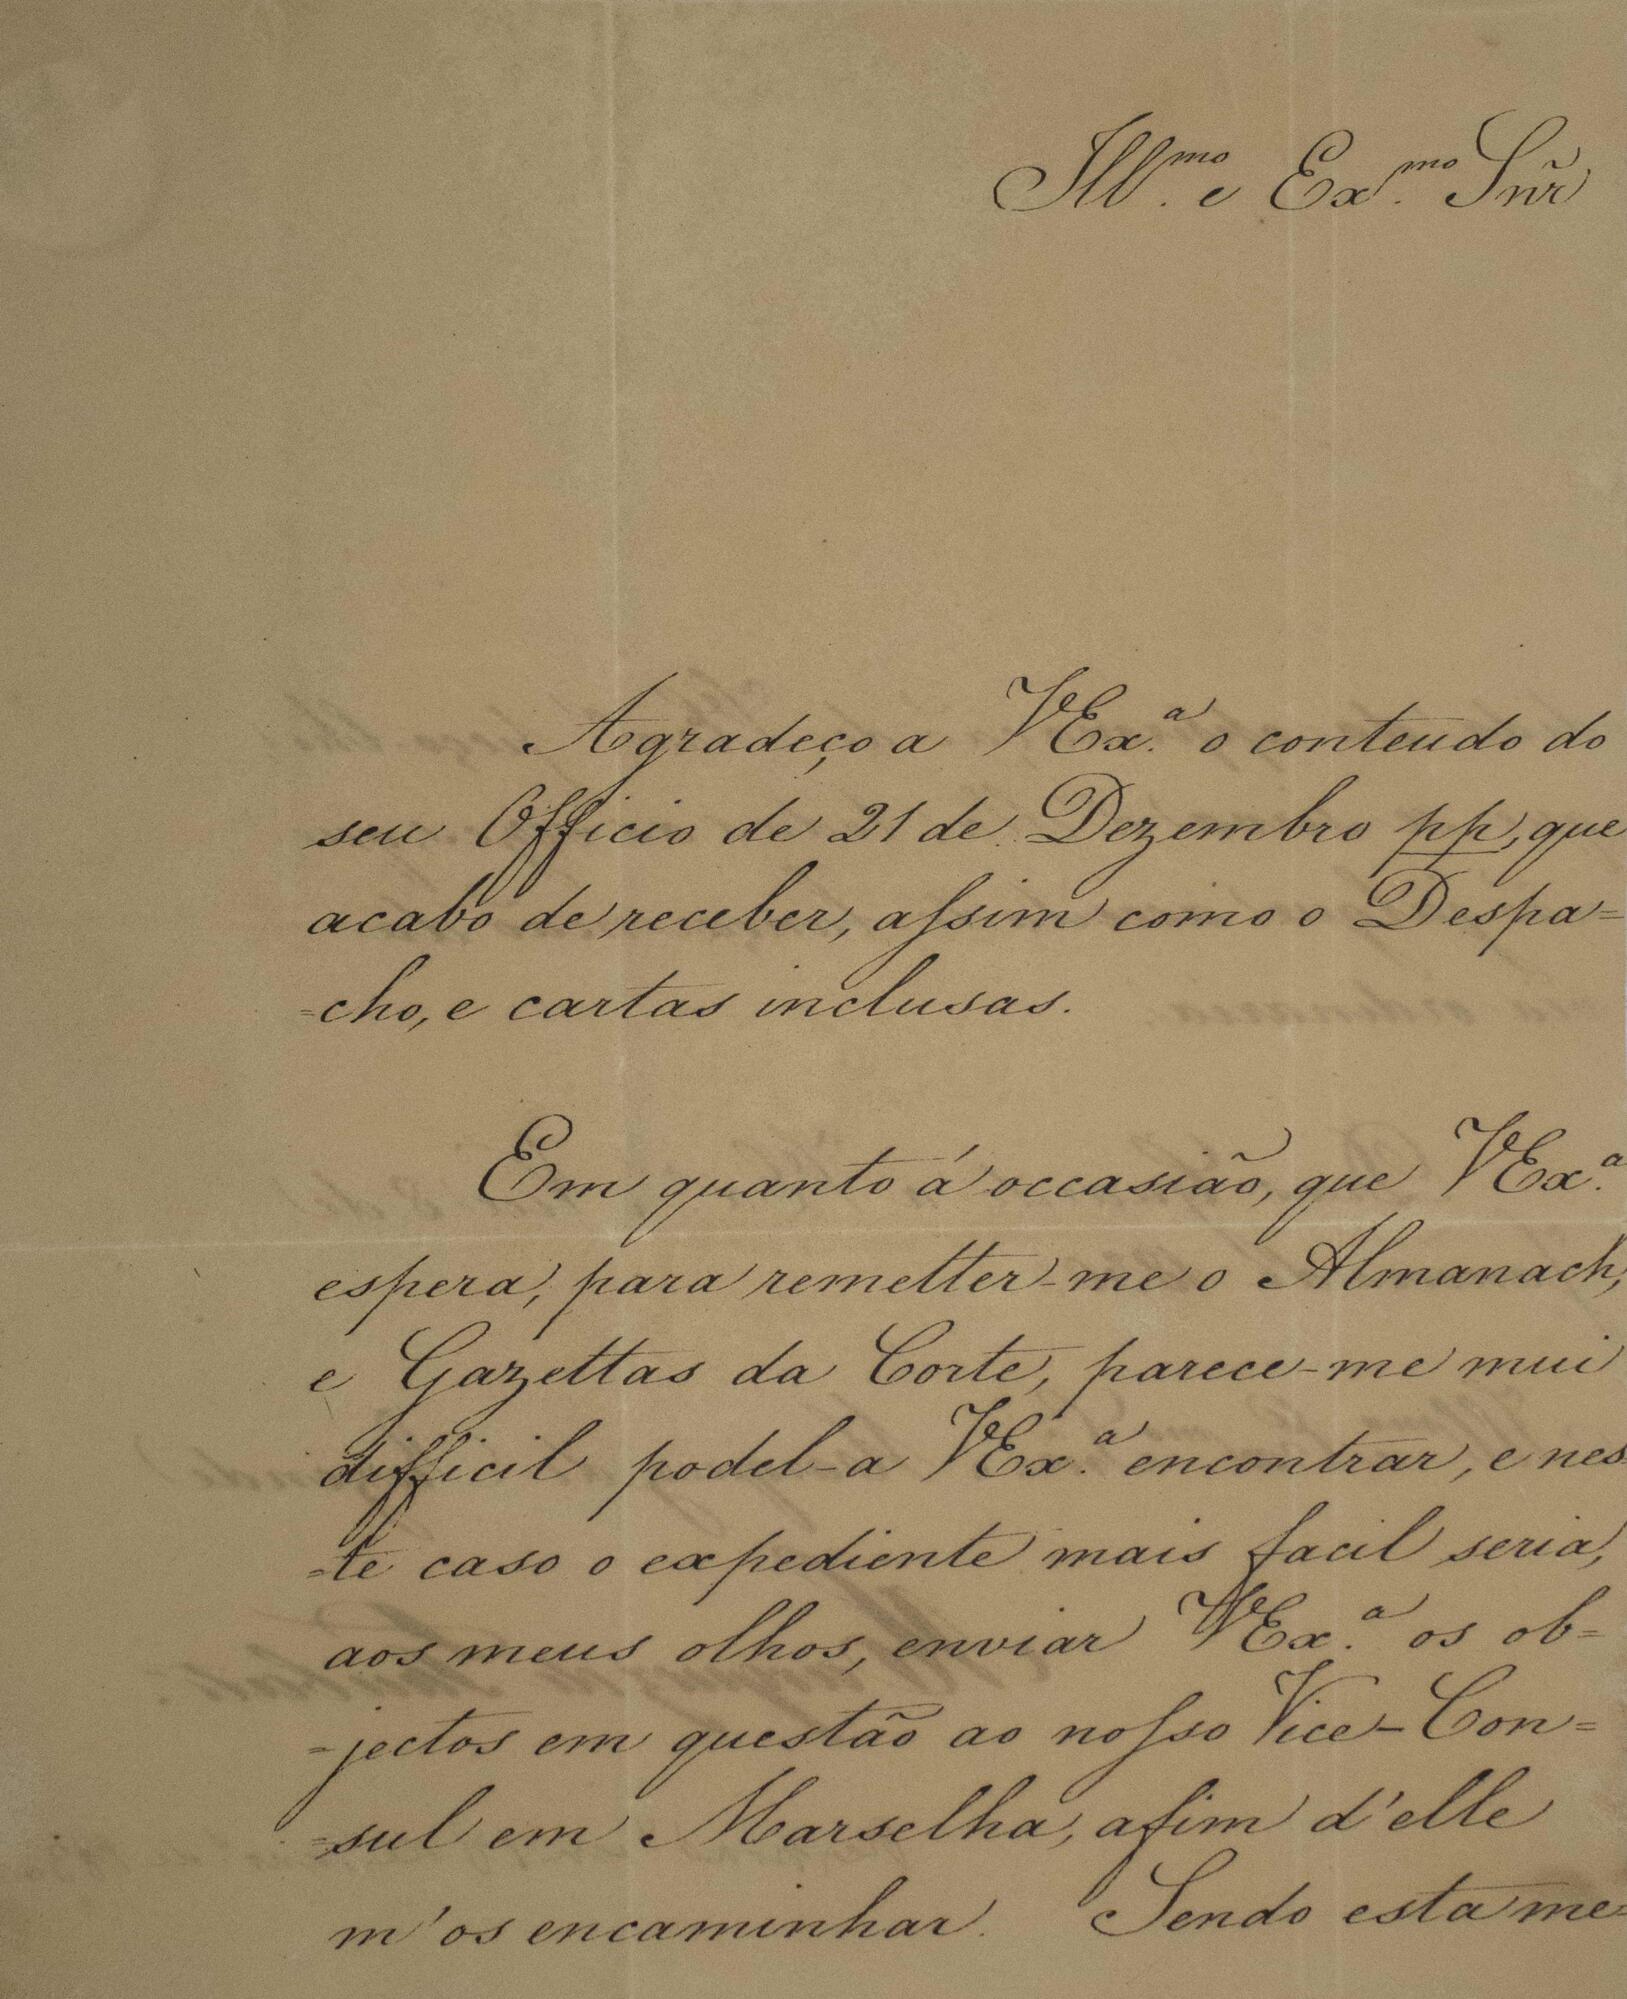 Ill.mo e Ex.mo Snr̃
Agradeço a VEx.a o conteudo do
seu Officio de 21 de Dezembro pp, que
acabo de receber, aſsim como o Despa=
=cho, e cartas inclusas.
Em quanto á occasião, que VEx.a
espera, para remetter-me o Almanach,
e Gazettas da Corte, parece-me mui
difficil podel-a VEx.a encontrar, e nes
=te caso o expediente mais facil seria,
aos meus olhos, enviar VEx.a os ob=
=jectos em questão ao noſso Vice-Con=
=sul em Marselha, afim d'elle
m'os encaminhar. Sendo esta me=